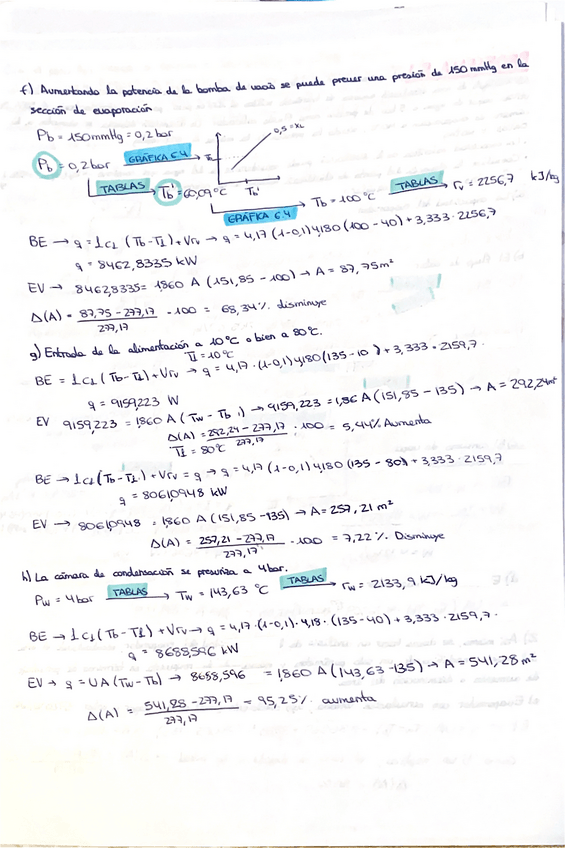 f) Aumentando la potencia de la bomba de vacío se puede prever una presión de 150 mmHg en la
sección de evaporación
Pb = 150mmHg = 0,2 bar
Pb = 0,2 bar GRÁFICA 6.4 → Tb
0,5 = XL
TABLAS → Tb' = 60,09°C
Tb'
GRÁFICA 6.4 → Tb = 100°C TABLAS → rv = 2256,7 kJ/kg
BE → q = L CL (Tb - TL) + V rv → q = 4,17 (1-0,1) 4,180 (100 - 40) + 3,333 · 2256,7
q = 8462,8335 kW
EV → 8462,8335 = 1,860 A (151,85 - 100) → A = 87,75 m²
Δ(A) = 87,75 - 277,17 / 277,17 · 100 = 68,34%. disminuye
g) Entrada de la alimentación a 10°C o bien a 80°C.
TL = 10°C
BE = L CL (Tb - TL) + V rv → q = 4,17 · (1-0,1) 4,180 (135 - 10) + 3,333 · 2159,7.
q = 9159,223 W
EV 9159,223 = 1,860 A (Tw - Tb) → 9159,223 = 1,86 A (151,85 - 135) → A = 292,24 m²
Δ(A) = 292,24 - 277,17 / 277,17 · 100 = 5,44% Aumenta
TL = 80°C
BE → L CL (Tb - TL) + V rv = q → q = 4,17 (1-0,1) 4,180 (135 - 80) + 3,333 · 2159,7
q = 8061,0948 kW
EV → 8061,0948 = 1,860 A (151,85 - 135) → A = 257,21 m²
Δ(A) = 257,21 - 277,17 / 277,17 · 100 = 7,22%. Disminuye
h) La cámara de condensación se presuriza a 4 bar.
Pw = 4 bar TABLAS → Tw = 143,63 °C TABLAS → rw = 2133,9 kJ/kg
BE → L CL (Tb - TL) + V rv → q = 4,17 · (1-0,1) · 4,18 · (135 - 40) + 3,333 · 2159,7.
q = 8688,596 kW
EV → q = UA (Tw - Tb) → 8688,596 = 1,860 A (143,63 - 135) → A = 541,28 m²
Δ(A) = 541,28 - 277,17 / 277,17 = 95,25%. aumenta